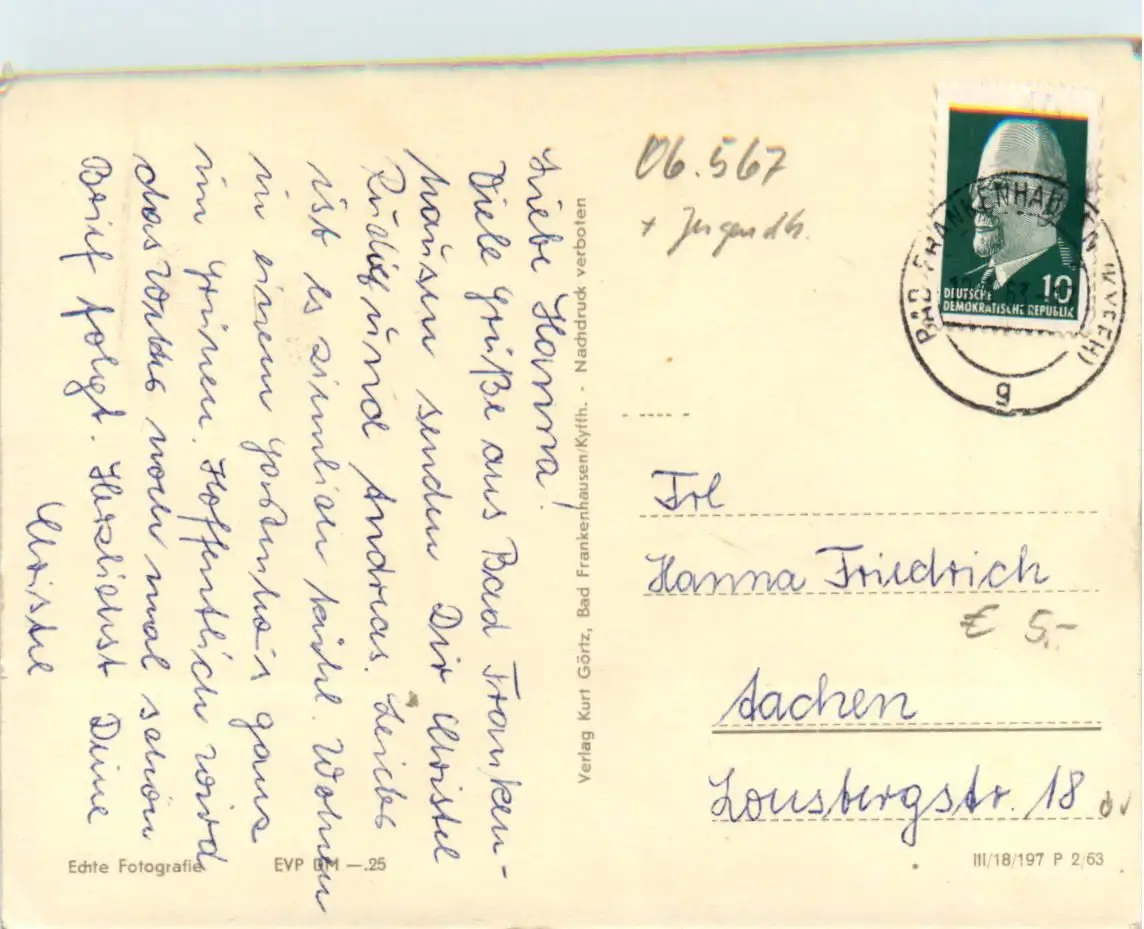 Liebe Hanna!
Viele Grüße aus Bad Franken-
hausen senden Dir Christel
Rüdig und Andreas. Leider
ist es ziemlich kühl. Wohnen
in einem Gartenhäus ganz
im Grünen. Hoffentlich wird
das Wetter noch mal schön
Brief folgt. Herzlichst Deine
Christel
Verlag Kurt Görtz, Bad Frankenhausen/Kyffh. - Nachdruck verboten
Echte Fotografie
EVP DM —.25
06.567
+ Jugendh.
BAD FRANKENHAUSEN (KYFFH)
g
10
DEUTSCHE
DEMOKRATISCHE REPUBLIK
Frl
Hanna Friedrich
€ 5,-
Aachen
Lousbergstr. 18
III/18/197 P 2/63